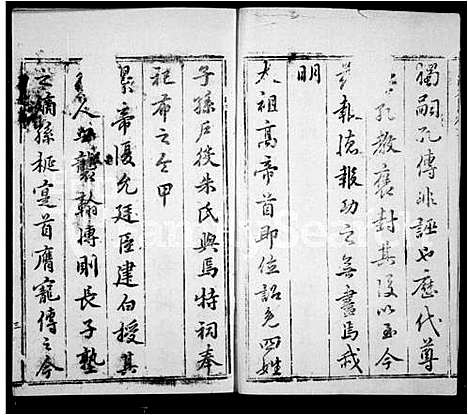 獨嗣孔傳非誣也歷代尊
孔教褒封其後以至今
報德報功之無書焉我
明
太祖高帝首即位詔免四姓
子孫戶役朱氏與焉特祠奉
祀希之令甲
景帝復允廷臣建白授其
人世襲翰博則長子塾
之嫡孫梴寔首膺寵傳之今
三